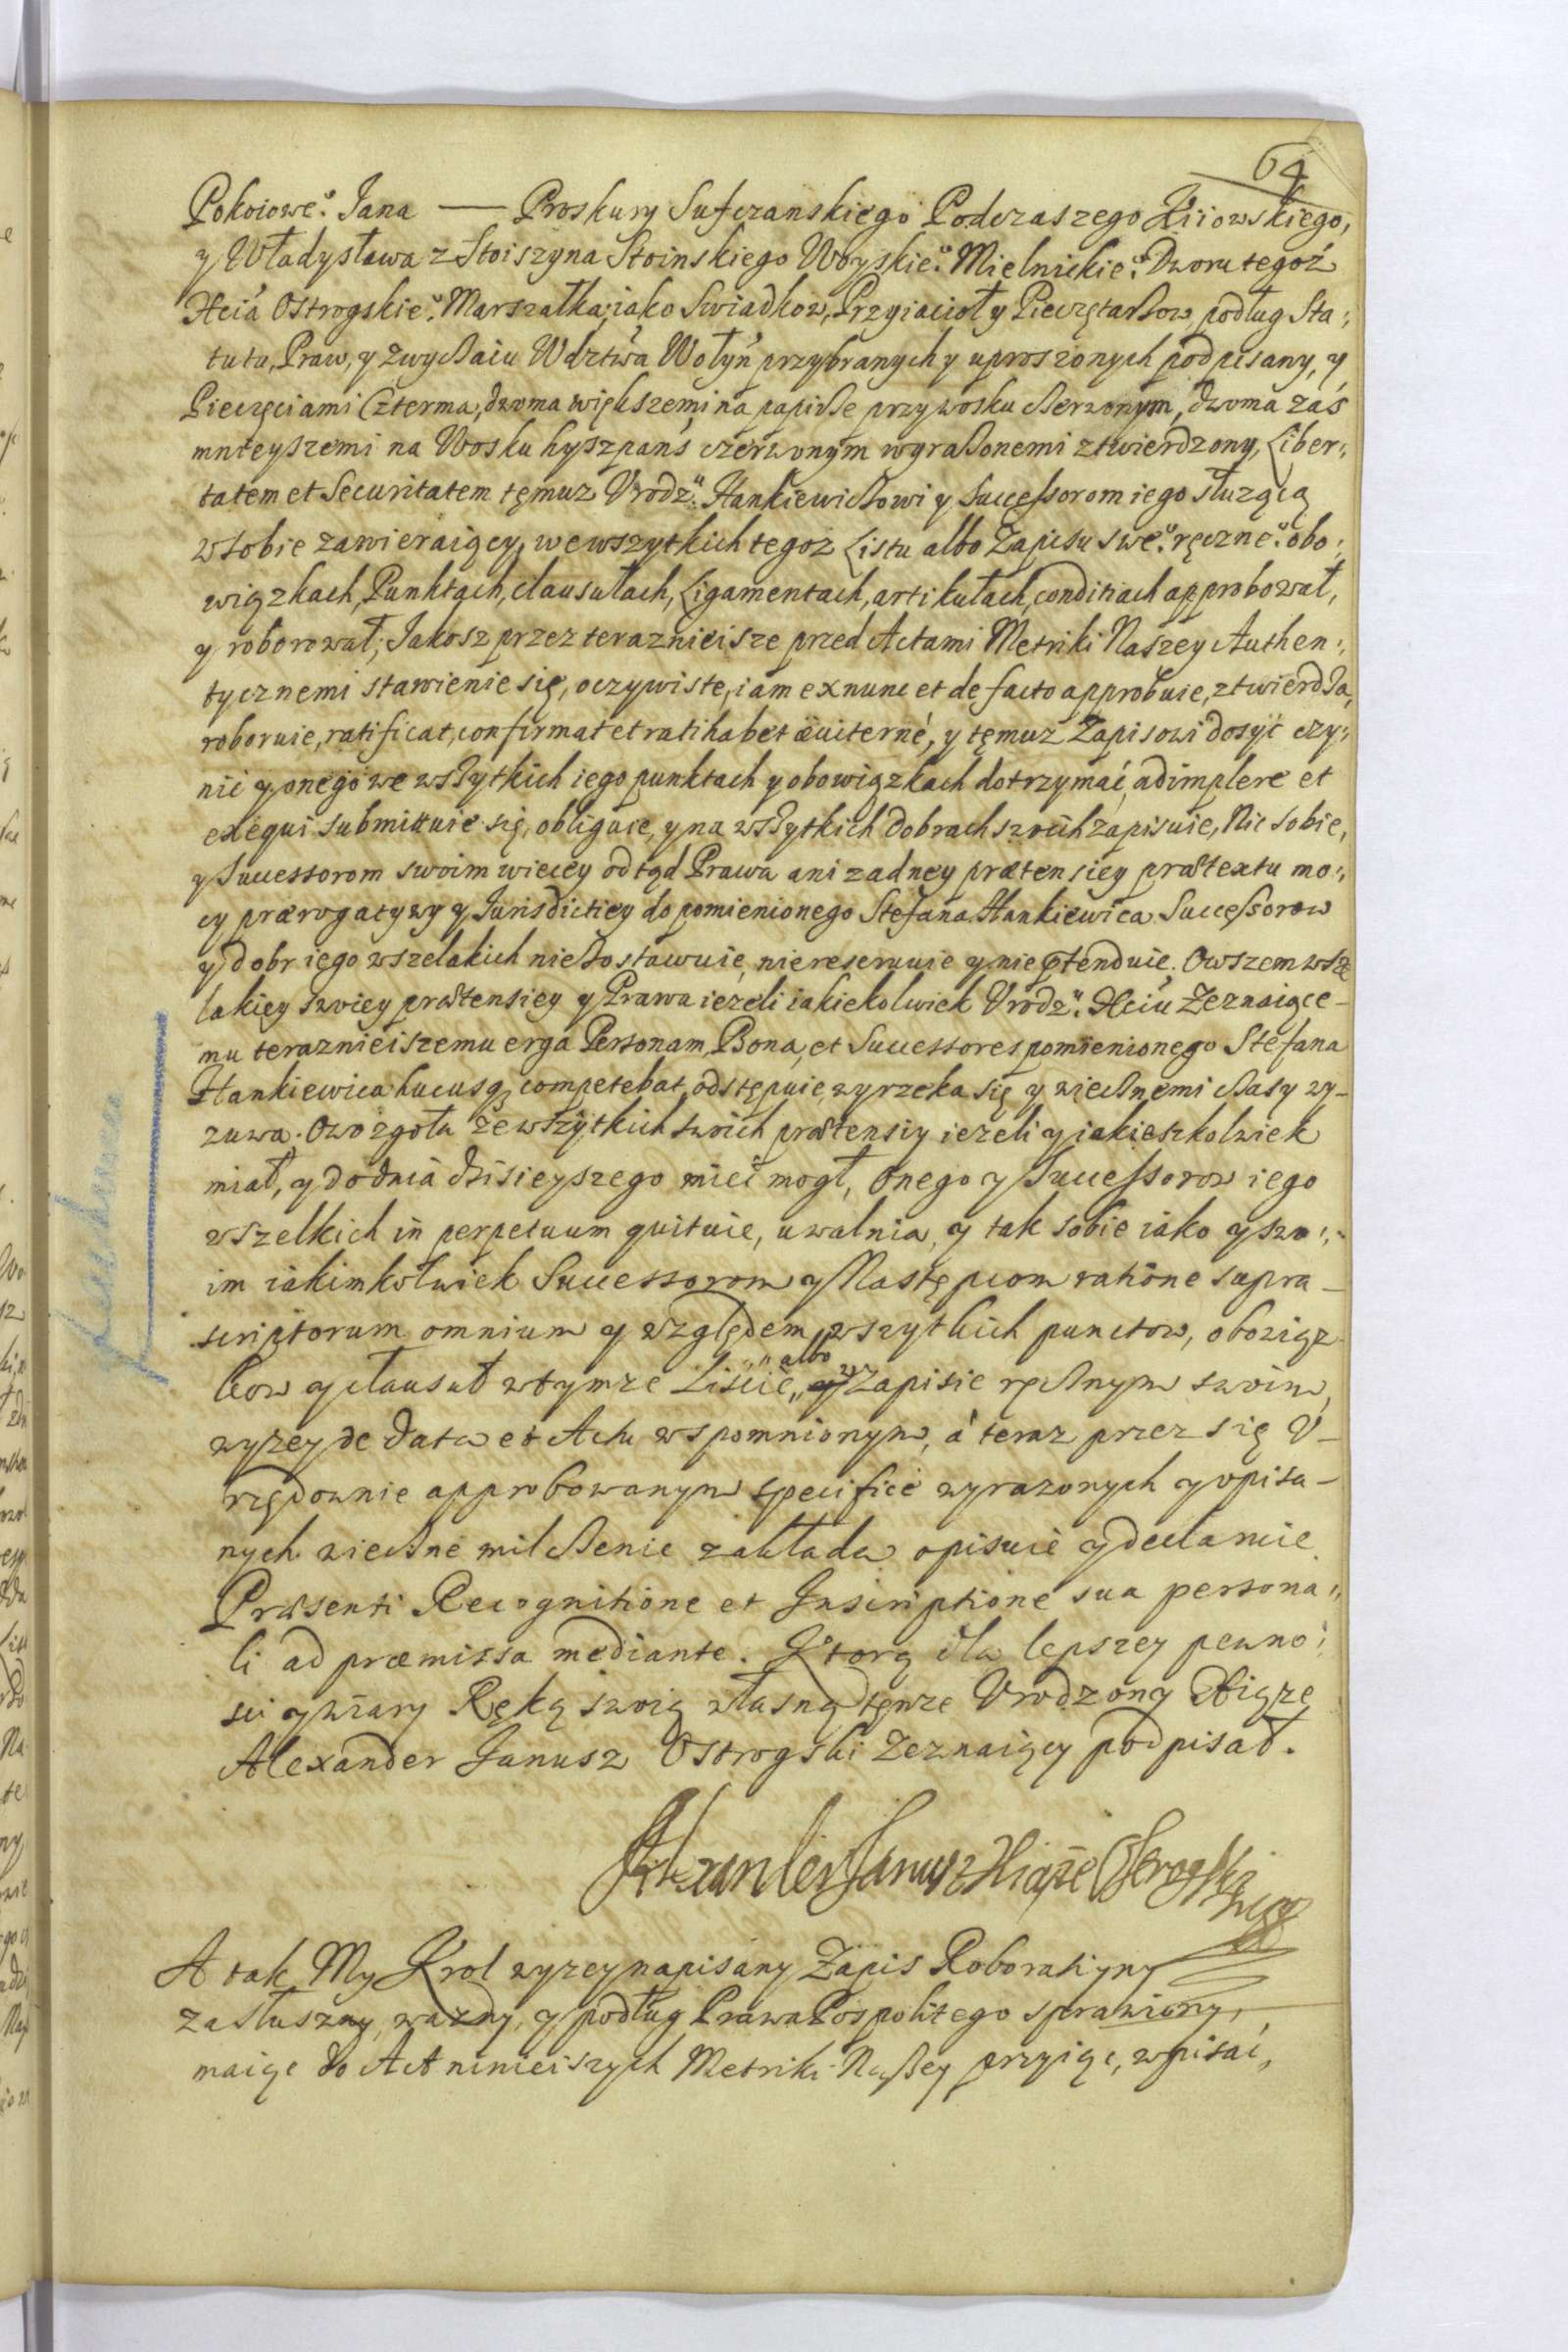 64
Pokoiowe.º Jana — Proskury Sufczanskiego Podczaszego Kiiowskiego,
y Władysława z Stoiszyna Stoinskiego Woyskie.º Mielnickie.º Dworu tegoż
Xcia Ostrogskie.º Marszałka, iako Swiadkow, Przyiacioł y Pieczętarzow, podług Sta:,
tutu, Praw, y zwyczaiu Wdztwa Wołyń przybranych y uproszonych podpisany, y
Pieczęciami Czterma, dwoma większemi na papierze przy wosku czerwonym, dwoma zaś
mnieyszemi na Wosku hyszpańs czerwonym wyrażonemi ztwierdzony, Liber:,
tatem et Securitatem temuz Vrodz.ᵘ Hankiewiczowi y Successorom iego słuzącą
w sobie zawieraiący, we wszytkich tegoz Listu albo Zapisu swe.º ręczne.º obo:,
wiązkach, Punktach, clausułach, Ligamentach, artikułach, conditiach approbował,
y roborował; Jakosz przez teraznieisze przed Actami Metriki Naszey Authen:,
tycznemi stawienie się, oczywiste, iam ex nunc et de facto approbuie, ztwierdza,
roboruie, ratificat, confirmat et ratihabet æuiterné, y temuz Zapisowi dosyć czy:,
nić y onego we wszytkich iego punktach y obowiązkach dotrzymać, adimplere et
exequi submittuie się, obliguie, y na wszytkich Dobrach swoich zapisuie, Nic sobie,
y Successorom swoim wiecey odtąd Prawa ani zadney prætensiey prætextu mo:,
cy prærogatywy y Jurisdictiey do pomienionego Stefana Hankiewica Successorow
y dobr iego wszelakich nie zostawuie, nie reseruuie y nie prtenduie. Owszem wsze
lakiey swoiey prætensiey y Prawa iezeli iakiekolwiek Vrodz.ᵘ Xciu Zeznaiące-
mu teraznieiszemu erga Personam, Bona, et Successores pomienionego Stefana
Hankiewica hucusq competebat, odstępuie, wyrzeka się y wiecznemi czasy wy-
zuwa. Owo zgoła ze wszytkich swoich prætensiy iezeli y iakieszkolwiek
miał, y do dnia dzisieyszego mieć mogł, Onego y Successorow iego
wszelkich in perpetuum quituie, uwalnia, y tak sobie iako y swo:,
im iakimkolwiek Successorom y Następcom ratione supra-
scriptorum omnium y względem wszytkich punctow, obowiąz
kow y clausuł w tymze Liście, albo w Zapisie ręcznym swoim,
wyzey de data et Actu wspomnionym, à teraz przez się V-
rzędownie approbowanym specificé wyrazonych y opisa-
nych wieczne milczenie zakłada opisuie y declaruie
Præsenti Recognitione et Inscriptione sua persona:,
li ad præmissa mediante. Ktorą dla lepszey pewno:,
sci y wiary Ręką swoią własną tenze Vrodzony Xiąze
Alexander Janusz Ostrogski Zeznaiący podpisał.
Alexander Janusz Xiąże Ostrogski
A tak My Krol wyzey napisany Zapis Roboratiyny
za słuszny, wazny, y podług Prawa Pospolitego sprawiony,
maiąc do Act ninieiszych Metriki Naszey przyiąc, wpisać,